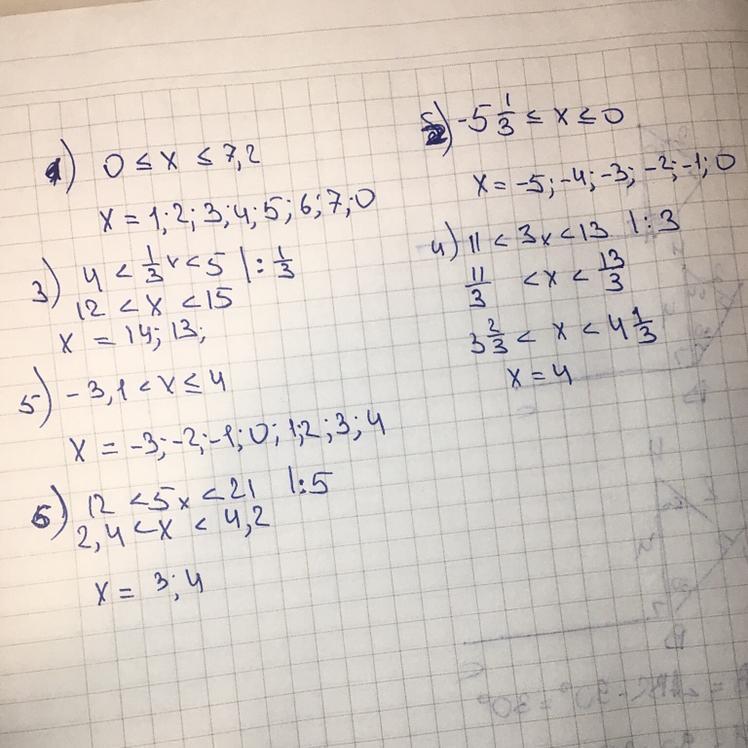 1) 0 ≤ x ≤ 7,2
x = 1; 2; 3; 4; 5; 6; 7; 0
3) 4 < 1/3 x < 5 | : 1/3
12 < x < 15
x = 14; 13;
5) -3,1 < x ≤ 4
x = -3; -2; -1; 0; 1; 2; 3; 4
6) 12 < 5x < 21 |:5
2,4 < x < 4,2
x = 3; 4
2) -5 1/3 ≤ x ≤ 0
x = -5; -4; -3; -2; -1; 0
4) 11 < 3x < 13 |:3
11/3 < x < 13/3
3 2/3 < x < 4 1/3
x = 4